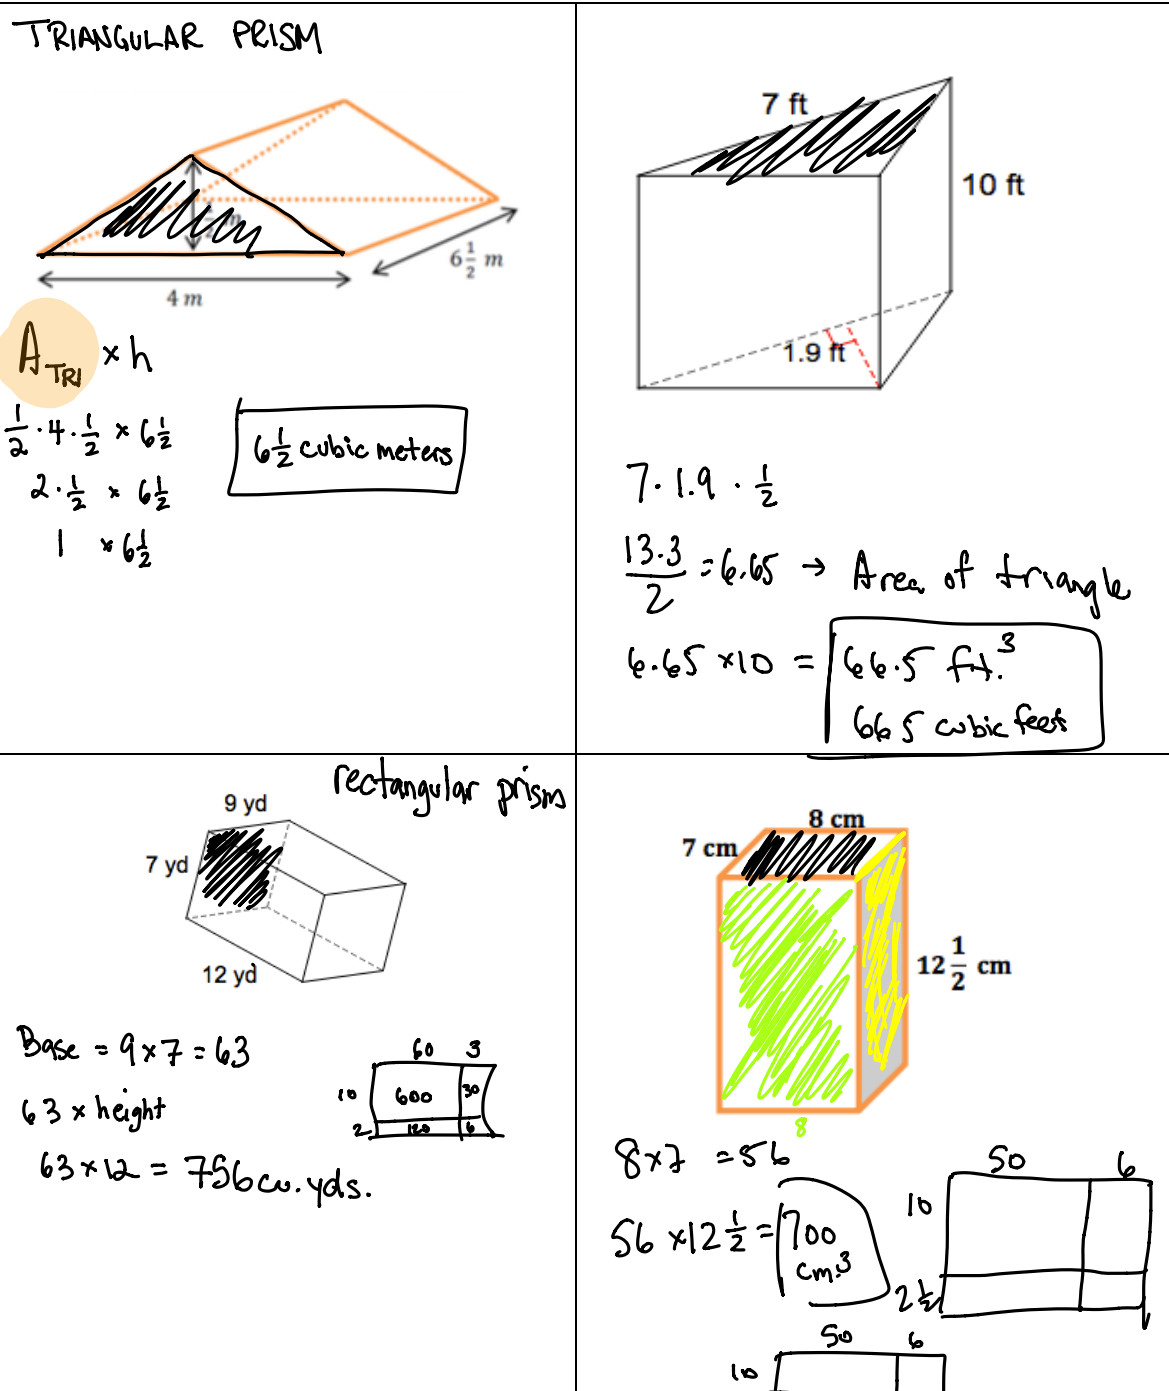 TRIANGULAR PRISM
4 m
6 1/2 m
A TRI × h
1/2 · 4 · 1/2 × 6 1/2
2 · 1/2 × 6 1/2
1 × 6 1/2
6 1/2 cubic meters
7 ft
10 ft
1.9 ft
7 · 1.9 · 1/2
13.3/2 = 6.65 → Area of triangle
6.65 × 10 = 66.5 ft.³
66.5 cubic feet
rectangular prism
9 yd
7 yd
12 yd
Base = 9 × 7 = 63
63 × height
63 × 12 = 756 cu. yds.
60 3
10 600 30
2 120 6
8 cm
7 cm
12 1/2 cm
8
8 × 7 = 56
56 × 12 1/2 = 700
cm.³
50 6
10
2 1/2
50 6
10